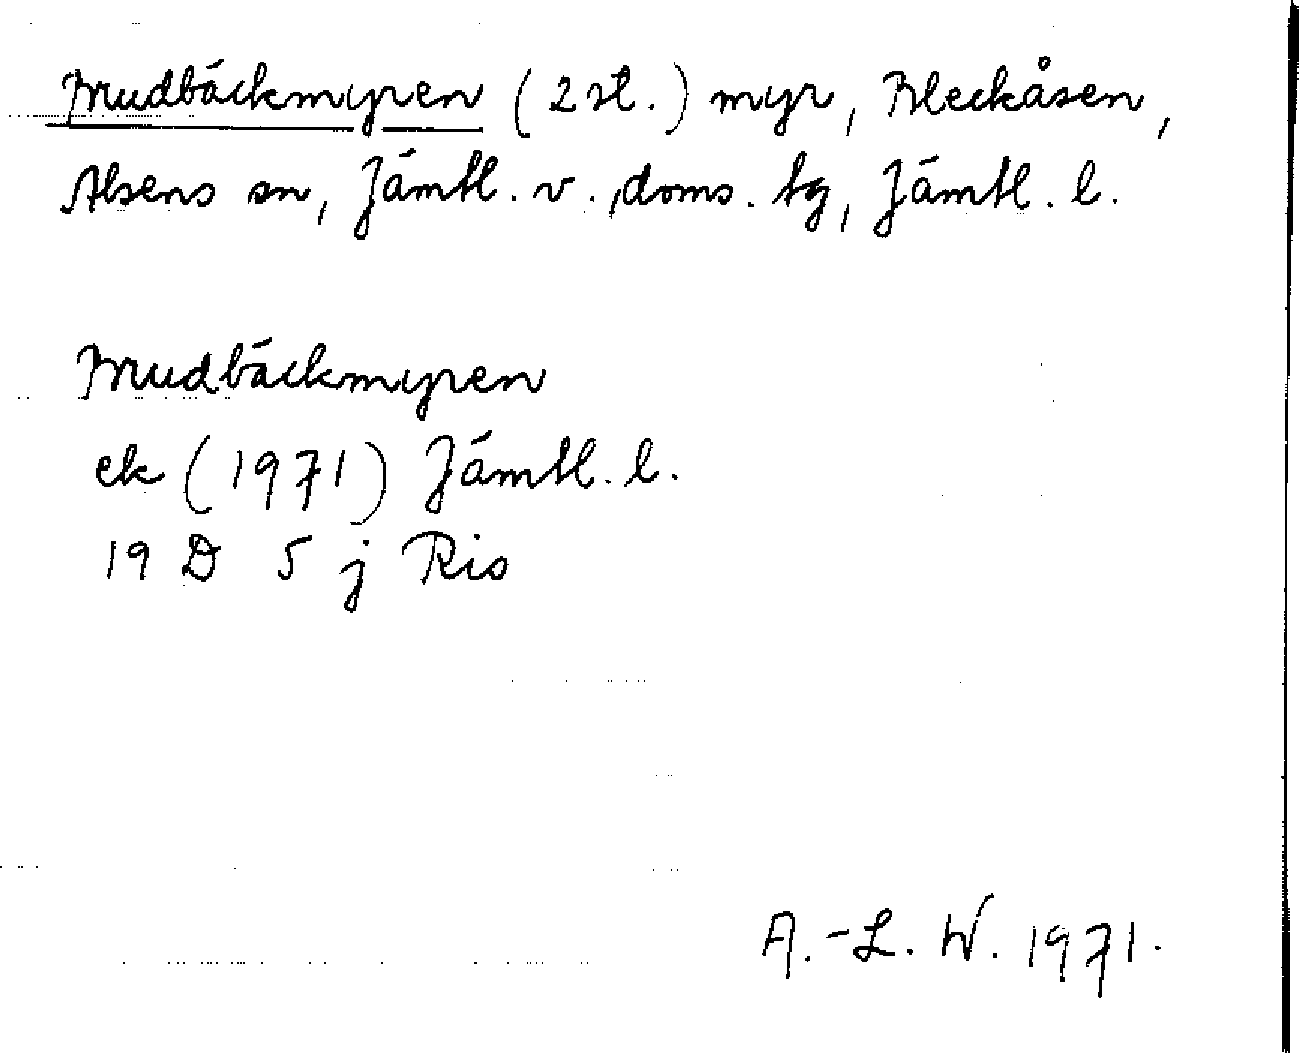 Brudbäckmyren (2 st.) myr, Bleckåsen,
Alsens sn, Jämtl. v. doms. tg, Jämtl. l.
Brudbäckmyren
ek (1971) Jämtl. l.
19 D 5 j Ris
A.-L. W. 1971.